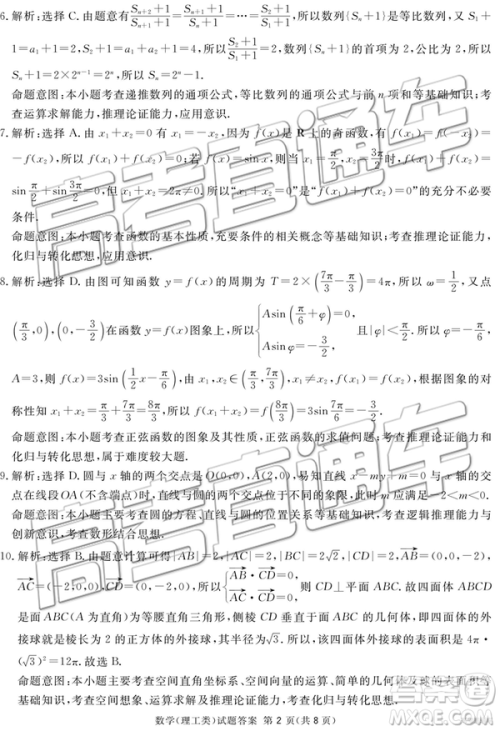 6. 解析:选择 C. 由题意有 (S_{n+2}+1)/(S_{n+1}+1)=(S_{n+1}+1)/(S_n+1)=…=(S_2+1)/(S_1+1),所以数列{S_n+1}为等比数列,又 S_1
+1=a_1+1=2,S_2+1=a_1+a_2+1=4,所以(S_2+1)/(S_1+1)=2,数列{S_n+1}的首项为 2,公比为 2,所以
S_n+1=2×2^{n-1}=2^n,所以 S_n=2^n-1.
命题意图:本小题考查递推数列的通项公式,等比数列的通项公式与前 n 项和等基础知识;考
查运算求解能力,推理论证能力,应用意识.
7. 解析:选择 A. 由 x_1+x_2=0 有 x_1=-x_2,因为 f(x)是 R 上的奇函数,有 f(x_1)=f(-x_2)=
-f(x_2),所以 f(x_1)+f(x_2)=0;若 f(x)=sin x,则当 x_1=π/2,x_2=3π/2时,f(x_1)+f(x_2)=
sin π/2+sin 3π/2=0,但 x_1+x_2=2π≠0. 所以“x_1+x_2=0”是“f(x_1)+f(x_2)=0”的充分不必要
条件.
命题意图:本小题考查函数的基本性质,充要条件等基础知识;考查推理论证能力,
化归与转化思想,应用意识.
8. 解析:选择 D. 由图可知函数 y=f(x)的周期为 T=2×(7π/3-π/3)=4π,所以 ω=1/2,又点
(π/3,0),(0,-3/2)在函数 y=f(x)图象上,所以{Asin(π/6+φ)=0, Asin φ=-3/2, 且|φ|<π/2,
A=3,则 f(x)=3sin(1/2 x-π/6),由 x_1,x_2∈(π/3,7π/3),x_1≠x_2,f(x_1)=f(x_2),根据图象的对
称性知 x_1+x_2=π/3+7π/3=8π/3,所以 f(x_1+x_2)=f(8π/3)=3sin 7π/6=-3/2.
命题意图:本小题考查正弦函数的图象与性质,正弦函数的求值问题;考查推理论证能力和化
归与转化思想,属于难度较大题.
9. 解析:选择 D. 圆与 x 轴的两个交点是 O(0,0),A(2,0),易见,只要直线 x-my+m=0 与 x 轴的交
点在线段 OA(不含端点)时,直线与圆的两个交点就在不同的象限,所以 m 应满足-2<m<0.
命题意图:本小题考查圆的方程、直线与圆的位置关系等基础知识;考查逻辑推理能力与
创新意识,考查数形结合思想.
10. 解析:选择 B. 由题意计算可得|AB|=2,|AC|=2,|BC|=2√2,|CD|=2,AB→=(0,0,-2),
AC→=(-2,0,0),CD→=(0,-2,0),所以{AB→·CD→=0, AC→·CD→=0, 则 CD⊥平面 ABC. 故四面体 ABCD
是底面 ABC(A 为直角)为等腰直角三角形,侧棱 CD 垂直于底面 ABC 的几何体,四面体的外
接球就是棱长为 2 的正方体的外接球,其半径为√3. 所以四面体外接球的表面积是 4π·
(√3)²=12π. 故选 B.
命题意图:本小题考查空间直角坐标系、空间向量的运算、简单的几何体及外接球等基础知
识;考查空间想象、运算求解等数学能力,考查化归与转化等数学思想.
数学(理工类)试题答案 第 2 页(共 8 页)
高考直通车
高考直通车